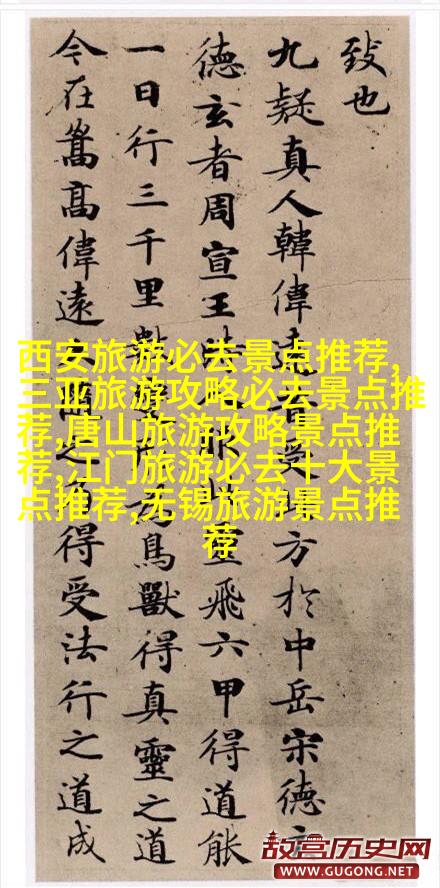 致也
九疑真人韓偉遠昔受方於中岳宋德玄
德玄者周宣王靈飛六甲得道能
一日行三千里數鳥獸得真靈之道
今在嵩高偉遠之得受法行之道成
西安旅游必去景点推荐,
三亚旅游攻略必去景点推
荐,唐山旅游攻略景点推
荐,江门旅游必去十大景
点推荐,无锡旅游景点推
荐
故宫历史网
WWW.GUGONG.NET